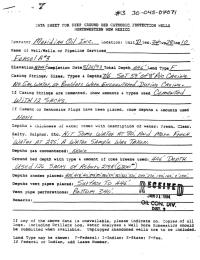 #3 30-045-09071
DATA SHEET FOR DEEP GROUND BED CATHODIC PROTECTION WELLS
NORTHWESTERN NEW MEXICO
Operator Meridian Oil Inc. Location: Unit Sec. Twp Rng
Name of Well/Wells or Pipeline Serviced
#3
Elevation Completion Date Total Depth 446' Land Type F
Casing Strings, Sizes, Types & Depths
No Gas, Water, or Boulders Were Encountered During Casing.
If Casing Strings are cemented, show amounts & types used Cemented
With 12 Sacks.
If Cement or Bentonite Plugs have been placed, show depths & amounts used
None
Depths & thickness of water zones with description of water: Fresh, Clear,
Salty, Sulphur, Etc. Hit Some Water At 90, And More Fresh
Water At 285. A Water Sample Was Taken.
Depths gas encountered: None
Ground bed depth with type & amount of coke breeze used: 446' Depth
Used 120 Sacks of
Depths anodes placed:
Depths vent pipes placed: Surface To 446'
Vent pipe perforations: Bottom 340'
RECEIVED
Remarks:
OIL CON. DIV.
DIST. 3
If any of the above data is unavailable, please indicate so. Copies of all
logs, including Drillers Log, Water Analyses & Well Bore Schematics should
be submitted when available. Unplugged abandoned wells are to be included.
Land Type may be shown: F-Federal; I-Indian; S-State; P-Fee.
If Federal or Indian, add Lease Number.